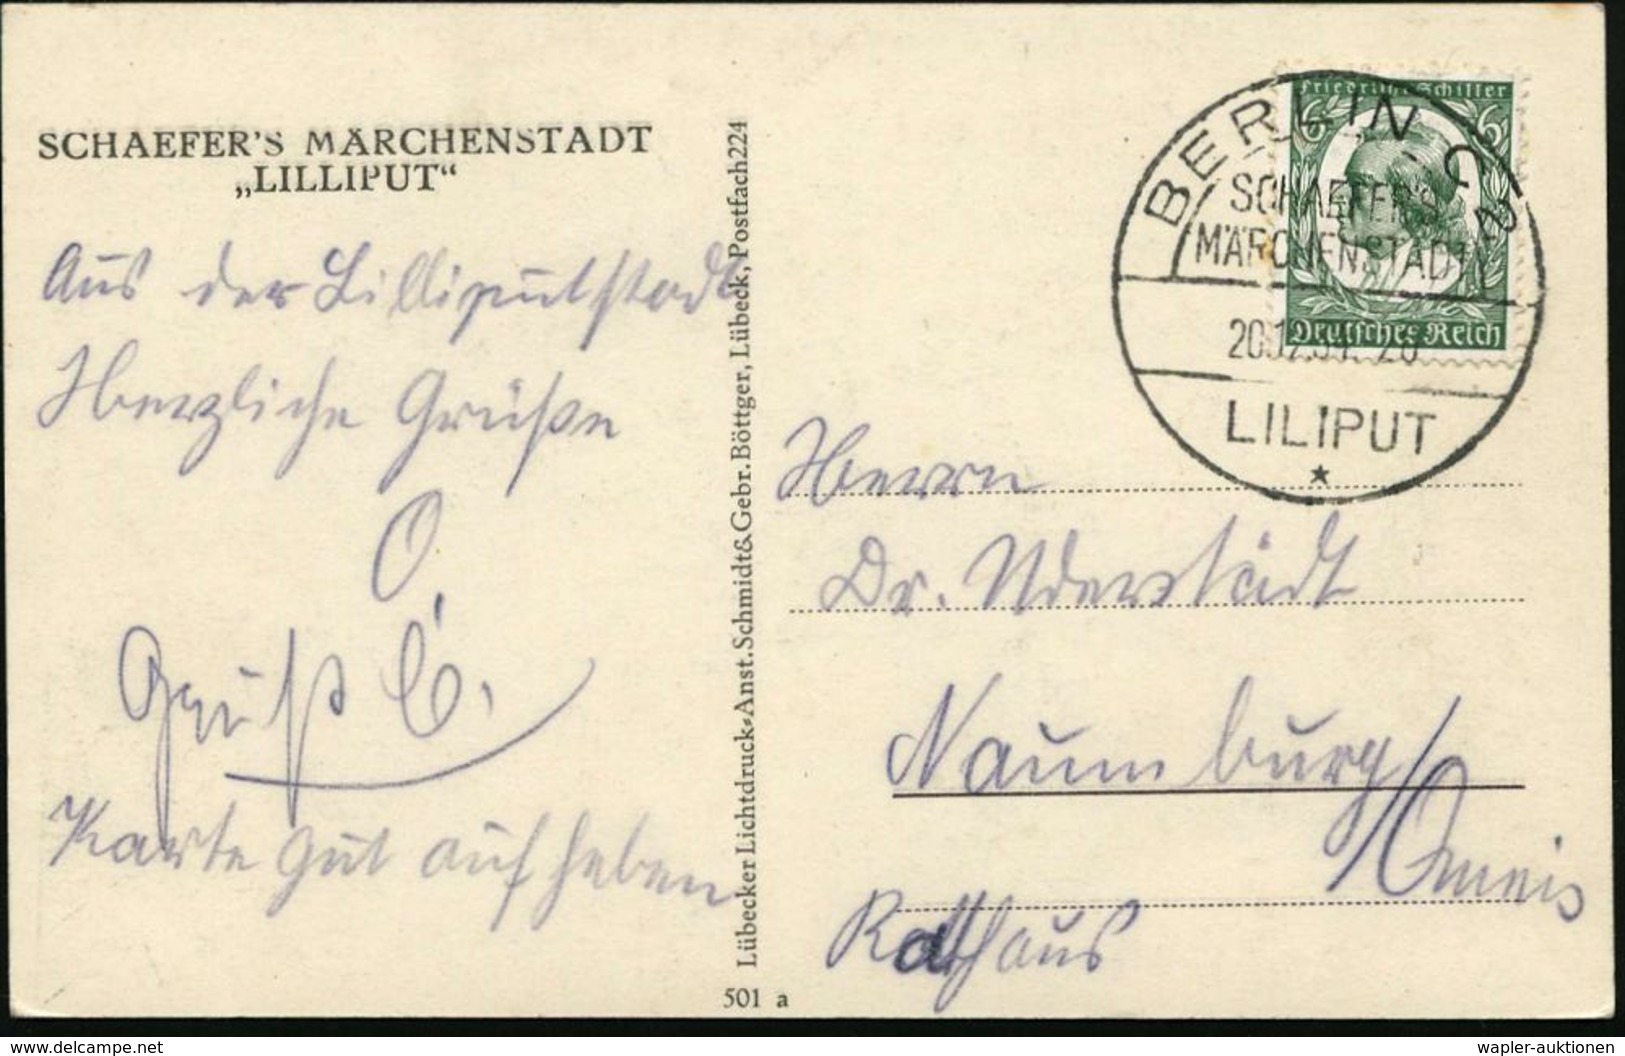 SCHAEFER'S MÄRCHENSTADT
„LILLIPUT“
Aus der Lilliputstadt
Herzliche Grüße
O
Gruß
Karte gut aufheben
Lübecker Lichtdruck-Anst.Schmidt&Gebr.Böttger, Lübeck, Postfach224
501 a
Friedrich Schiller
6 6
Deutsches Reich
BERLIN C 2
SCHAEFER'S
MÄRCHENSTADT
20.12.34. 20
LILIPUT
Herrn
Dr.
Naumburg/
Rathaus
delcampe.net
wapler-auktionen